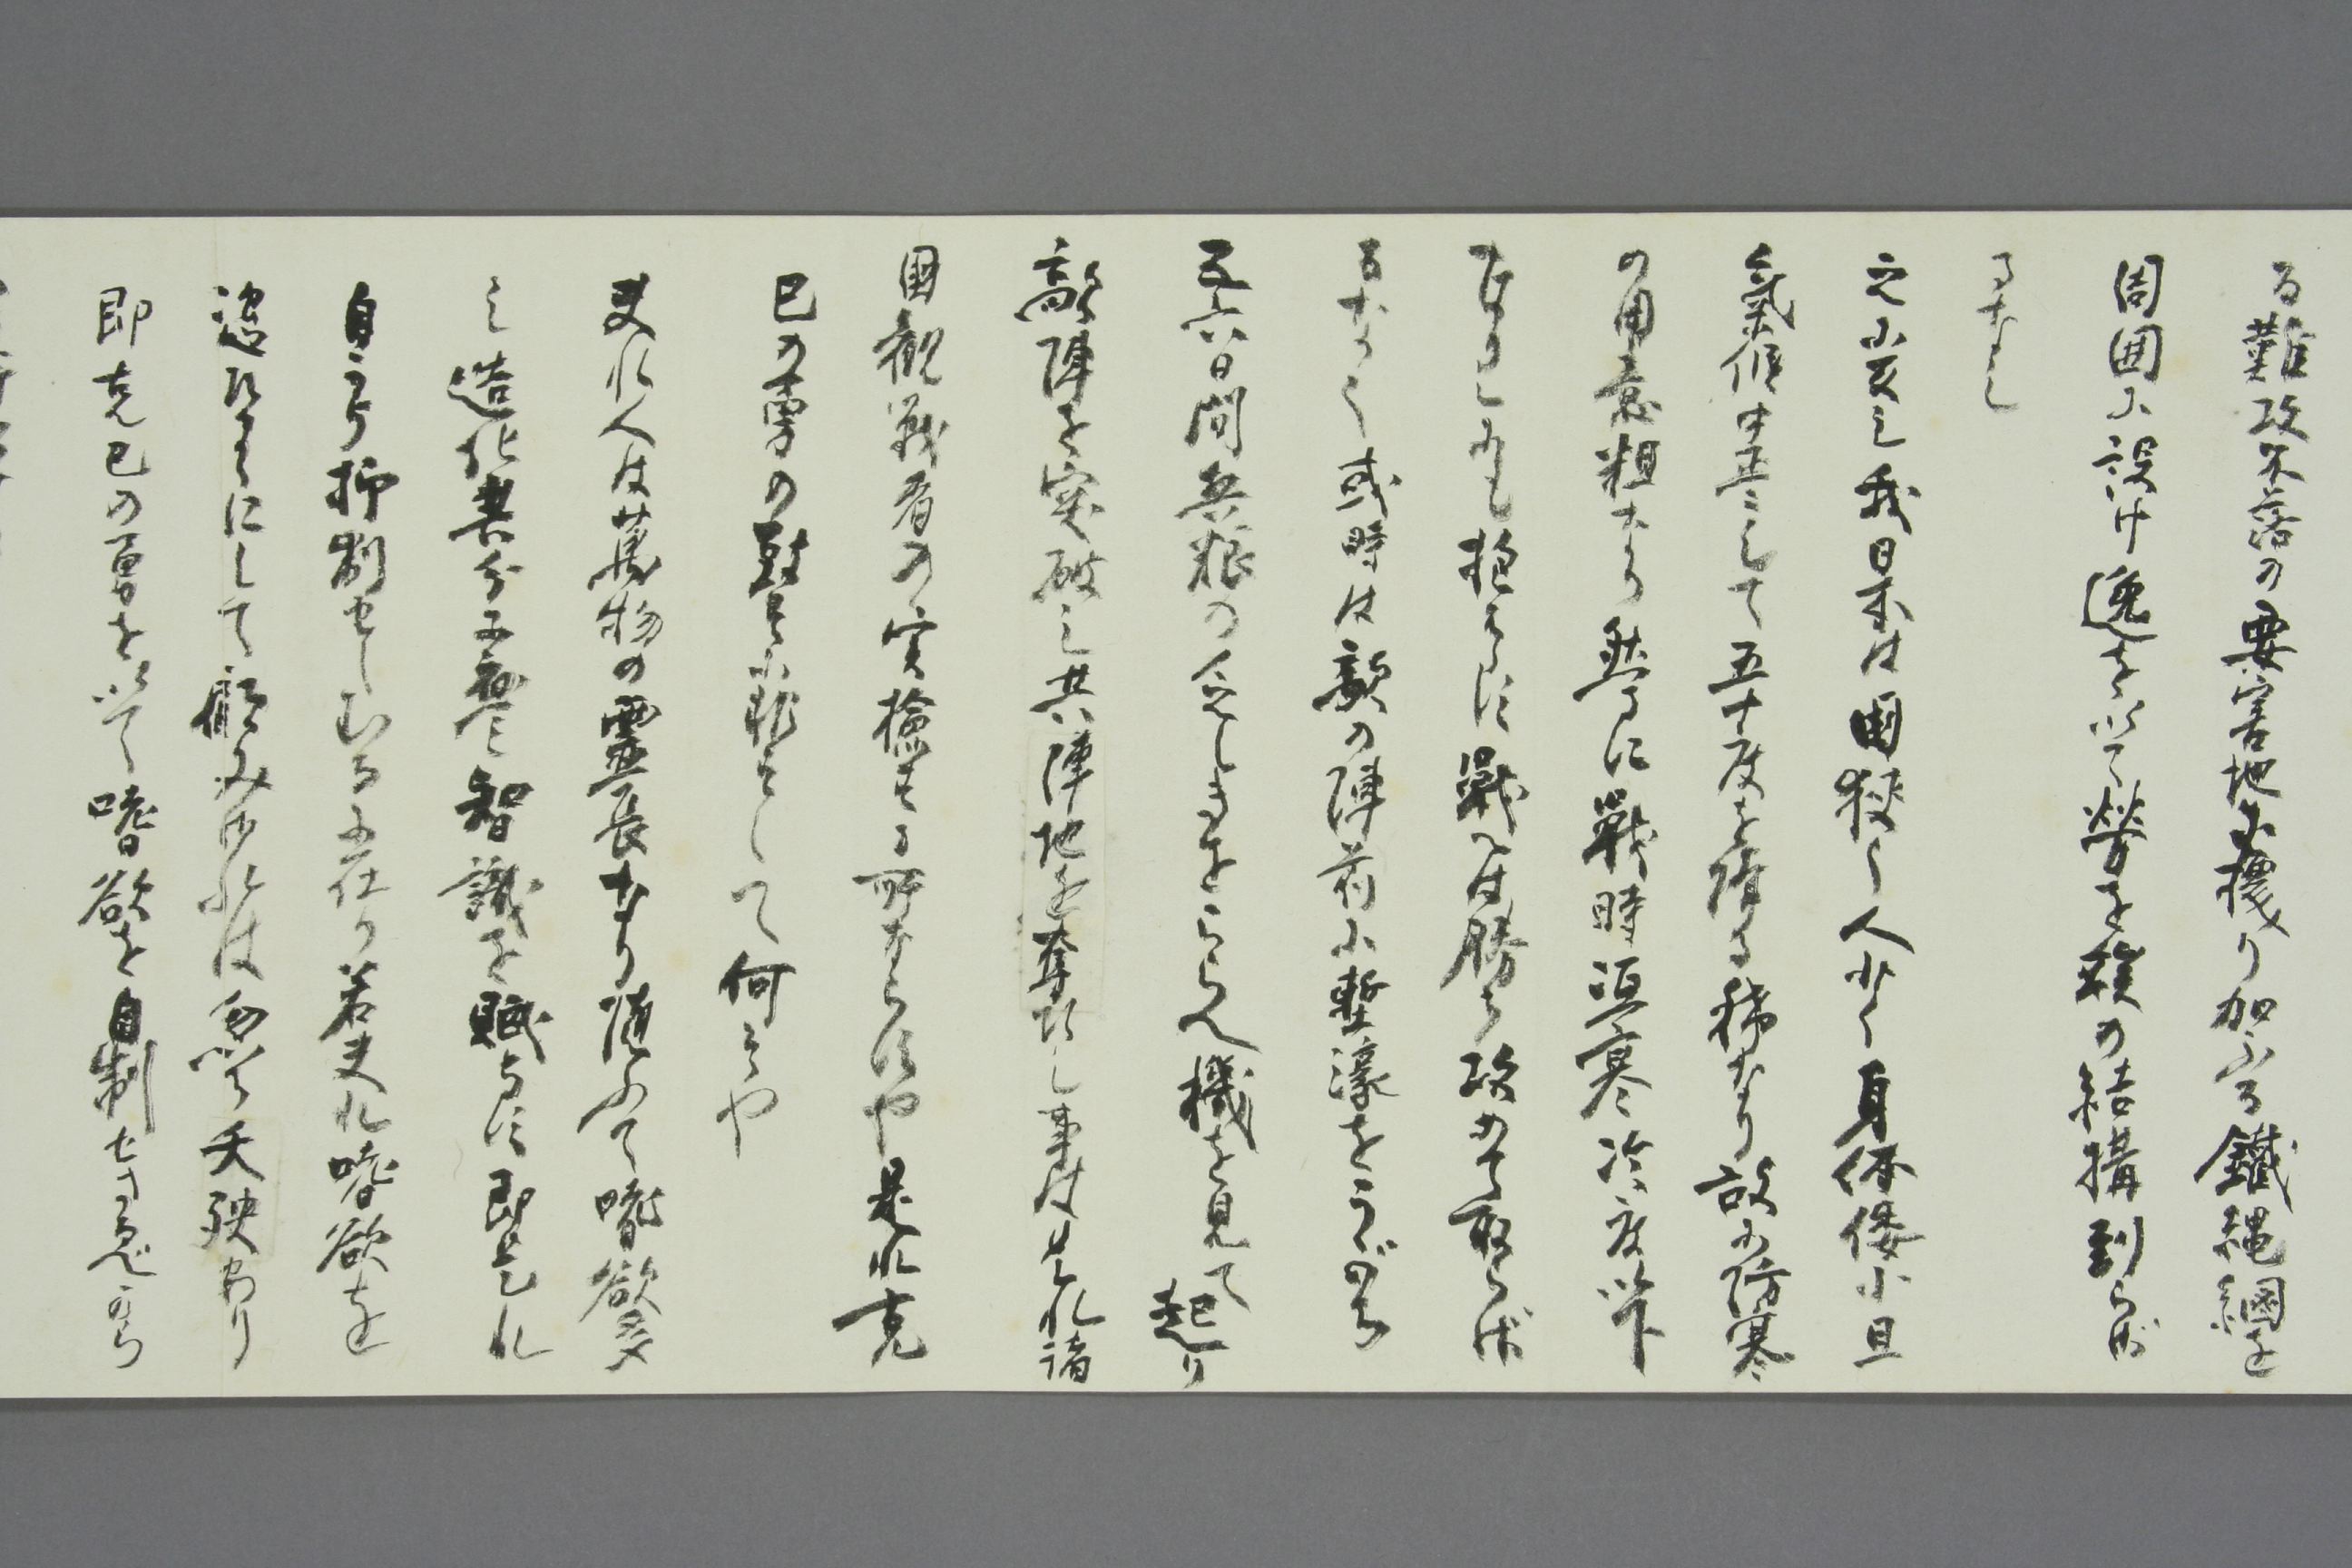 る難攻不落の要害地に據り加ふる鐵縄網を
周囲に設け逸を以て勞を竢の結構到らざ
るなし
之に反し我日本は国狭く人少く身体倭小且
氣候中正にして五十度を降る稀なり故に防寒
の用意粗なり然るに戰時沍寒冷度以下
なりしにも拘らず戰へは勝ち攻めて取らざ
るなく或時は敵の陣前に塹濠をうがのち
五六日間兵粮の乏しきをこらへ機を見て起り
敵陣を突破し其陣地を奪ひし事は是れ諸
国観戦者の実検する所ならずや是れ克
己の勇の鼓に非ずして何そや
夫れ人は萬物の霊長なり随ふて嗜欲多
し造化異分に靈智識を賦与す即是れ
自から抑制せしむるに在り若夫れ嗜欲を
恣ひまゝにして顧みされは必ず夭殃あり
即克己の勇を以て嗜欲を自制せさるべから